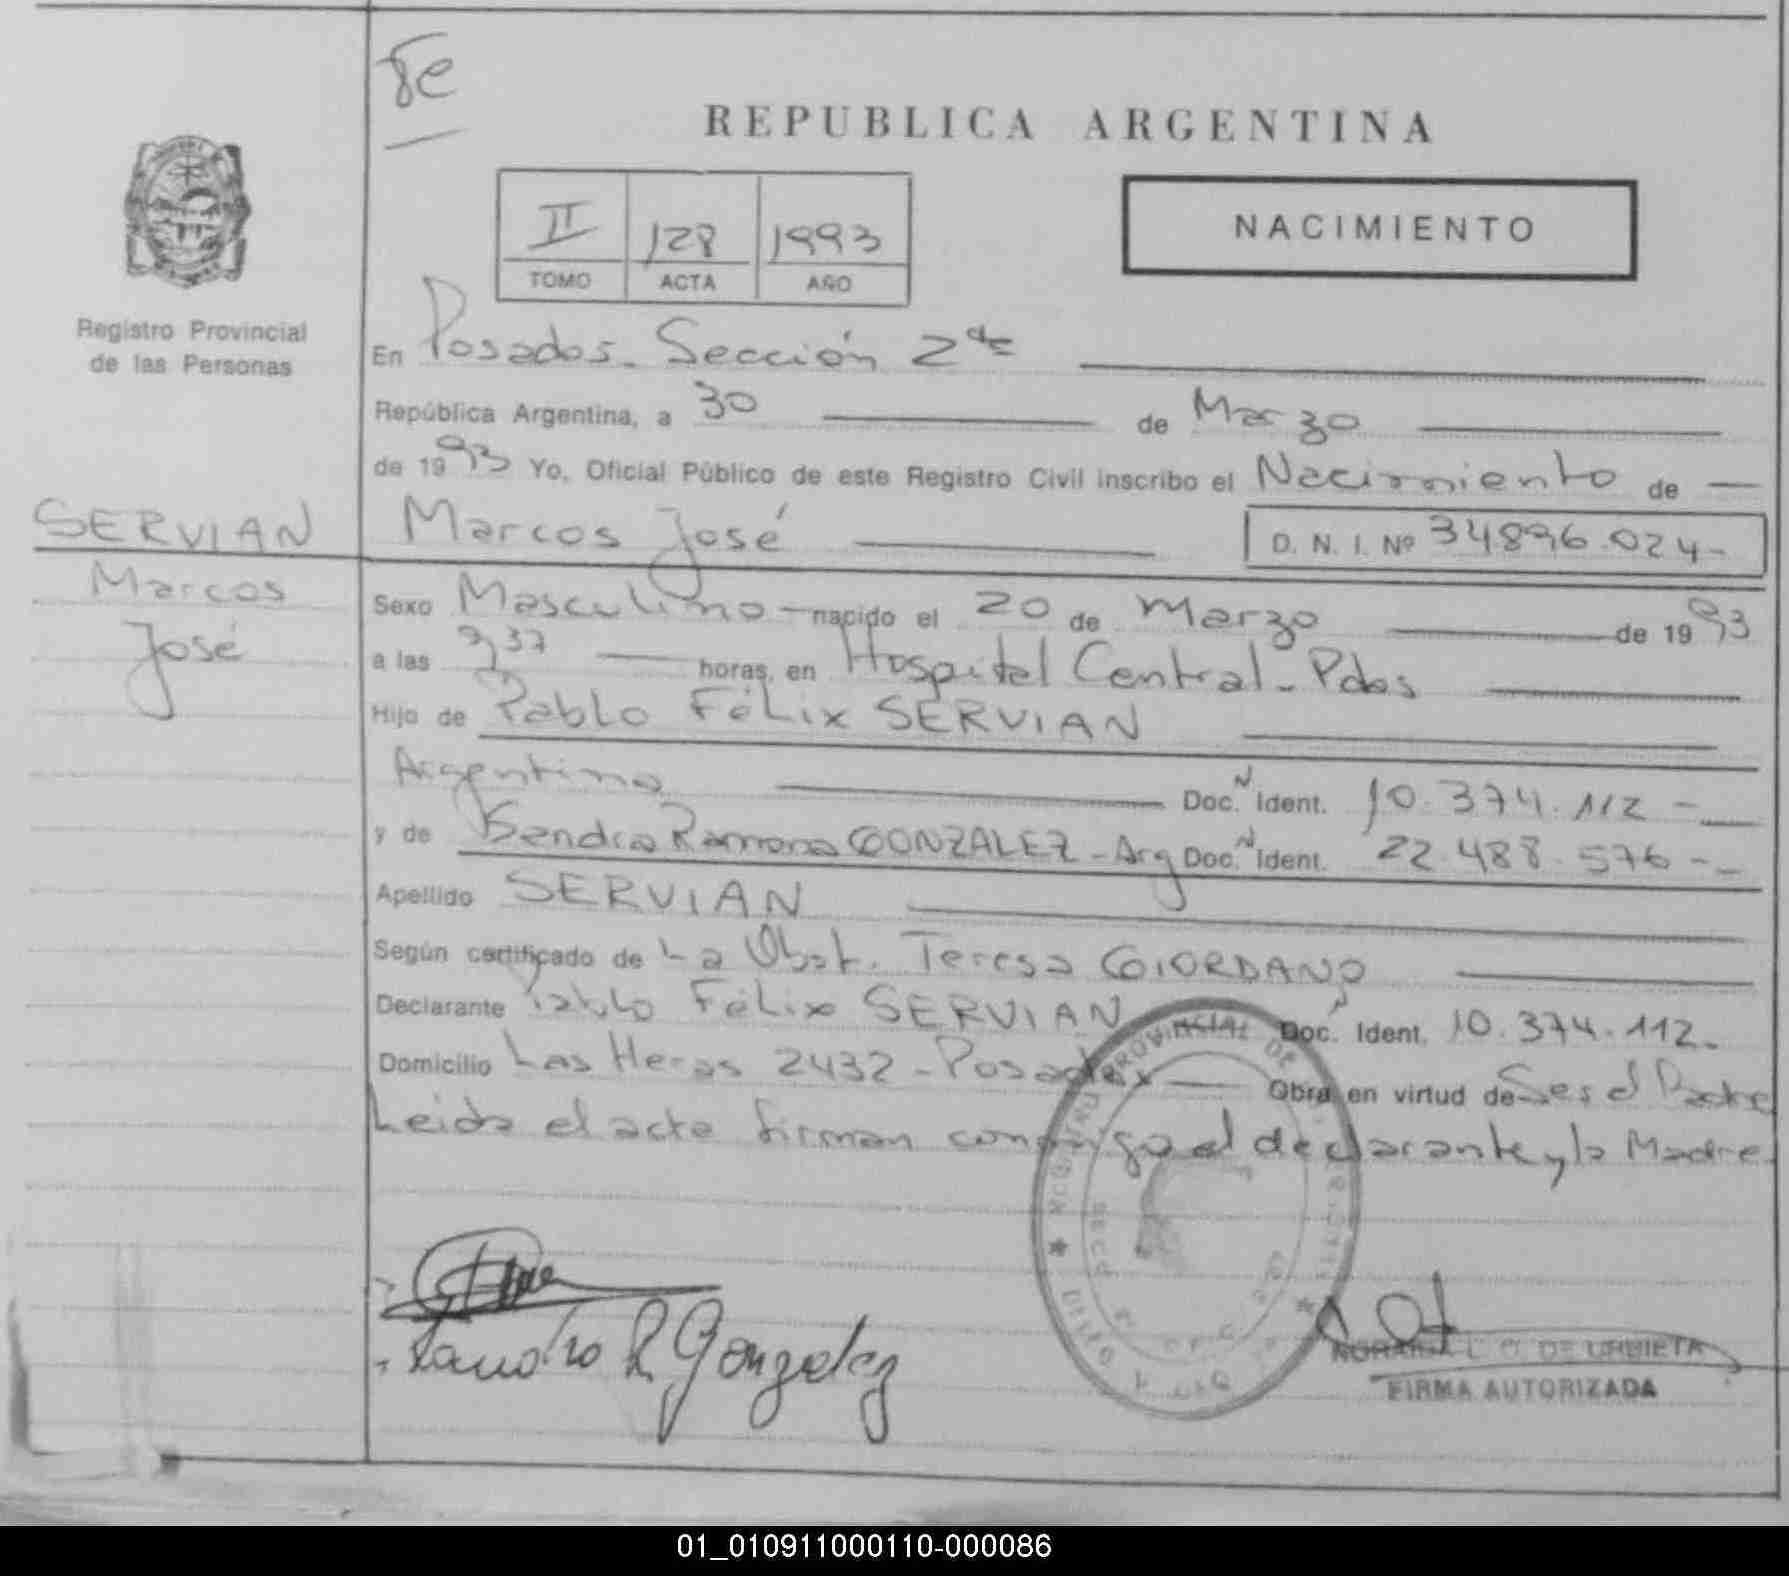 Fe
REPUBLICA ARGENTINA
II 128 1993
TOMO ACTA AÑO
NACIMIENTO
Registro Provincial
de las Personas
En Posadas - Sección 2da
República Argentina, a 30 de Marzo
de 1993 Yo, Oficial Público de este Registro Civil inscribo el Nacimiento de —
SERVIAN
Marcos
José
Marcos José D. N. I. Nº 34896.024-
Sexo Masculino - nacido el 20 de Marzo de 1993
a las 9,37 horas, en Hospital Central - Pdas
Hijo de Pablo Félix SERVIAN
Argentino Doc. N Ident. 10.374.112 -
y de Sandra Ramona GONZALEZ - Arg Doc. N Ident. 22.488.576 --
Apellido SERVIAN
Según certificado de La Obst. Teresa GIORDANO
Declarante Pablo Félix SERVIAN Doc. Ident. 10.374.112.
Domicilio Las Heras 2432 - Posadas — Obra en virtud de Ser el Padre
Leida el acta firman conmigo el declarante y la Madre
Sandra R Gonzalez
REGISTRO PROVINCIAL DE
DE URBIETA
FIRMA AUTORIZADA
01_010911000110-000086